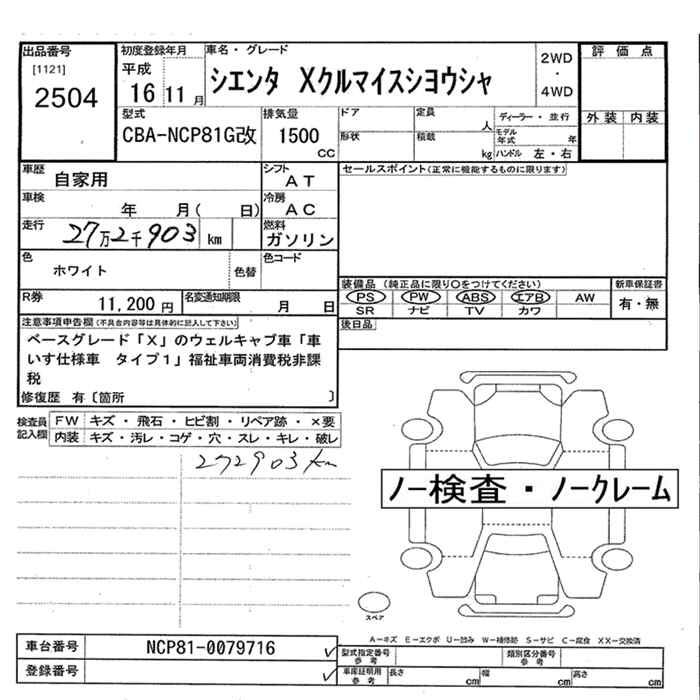 出品番号
[1121]
2504
初度登録年月
平成
16 11 月
車名・グレード
シエンタ Xクルマイスショウシャ
2WD
・
4WD
評価点
外装 内装
型式
CBA-NCP81G改
排気量
1500
CC
ドア
形状
定員
人
積載
kg
ディーラー・並行
モデル年式 年
ハンドル 左・右
車歴
自家用
シフト
AT
車検
年 月( 日)
冷房
AC
走行
27万2千903 km
燃料
ガソリン
色
ホワイト
色替
色コード
R券
11,200 円
名変通知期限
月 日
セールスポイント(正常に機能するものに限ります)
装備品 (純正品に限り○をつけてください)
PS PW ABS エアB AW
SR ナビ TV カワ
新車保証書
有・無
後日品
注意事項申告欄(不具合内容等は具体的に記入して下さい)
ベースグレード「X」のウェルキャブ車「車
いす仕様車 タイプ1」福祉車両消費税非課
税
修復歴 有〔箇所 〕
検査員
記入欄
FW キズ・飛石・ヒビ割・リペア跡・×要
内装 キズ・汚レ・コゲ・穴・スレ・キレ・破レ
272903km
ノー検査・ノークレーム
スペア
A-キズ E-エクボ U-凹み W-補修跡 S-サビ C-腐食 XX-交換済
車台番号
NCP81-0079716
登録番号
型式指定番号
参考
類別区分番号
参考
車庫証明用
参考
長さ cm
幅 cm
高さ cm